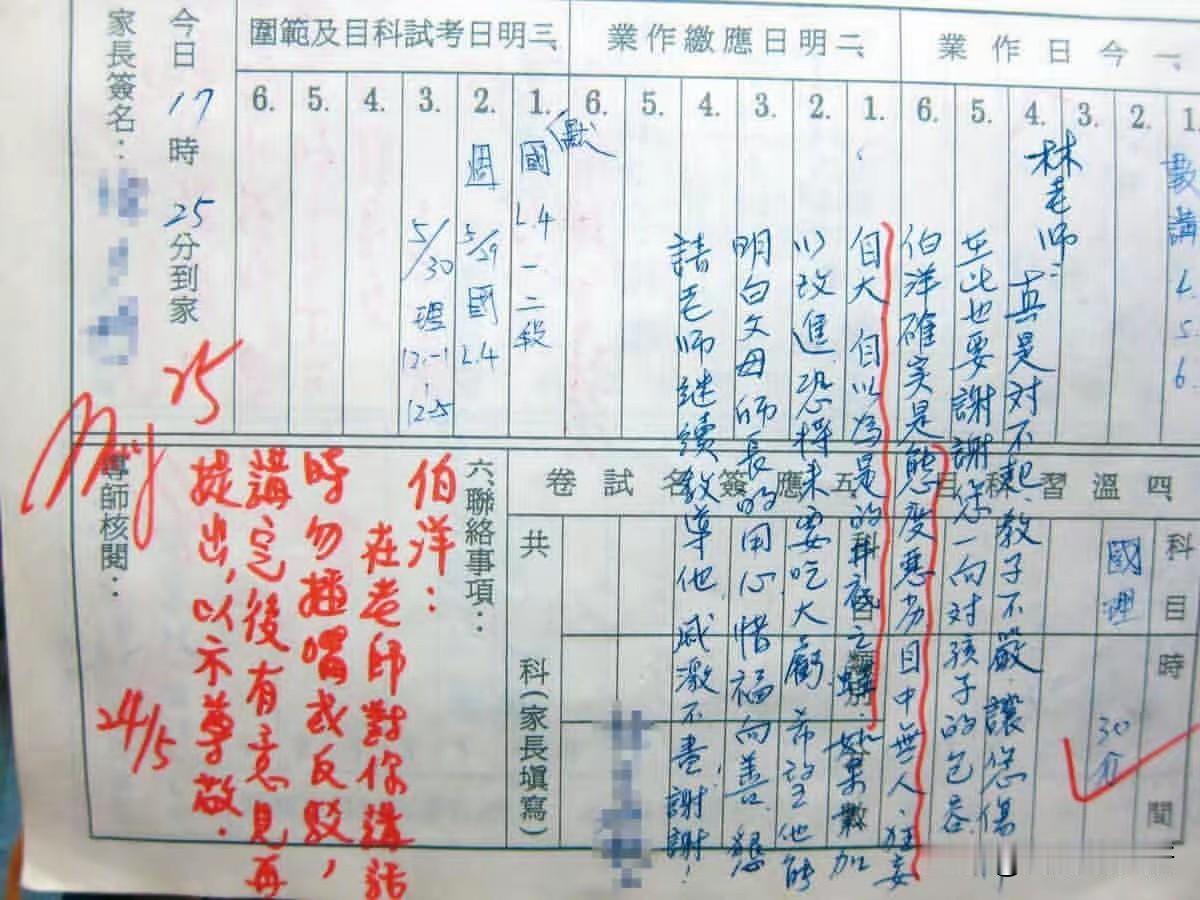 一、今日作業
1.
2.
3.
4.
5.
6.
數講 L.5 6
二、明日應繳作業
1.
2.
3.
4.
5.
6.
三、明日考試科目及範圍
1.
2.
3.
4.
5.
6.
(默)
國 L.4 一 二段
週 5/29 國 L.4
5/30 理 12-1 12-5
今日17時25分到家
家長簽名：
林老師：
真是對不起，教子不嚴，讓您傷
至此也要謝謝您一向對孩子的包容
伯洋確實是態度惡劣目中無人、狂妄
自大 自以為是的井底之蛙，如果不加
以改進恐將來要吃大虧 希望他能
明白父母師長的用心惜福向善，懇
請老師繼續教導他 感激不盡，謝謝！
四、溫習科目
科目
時間
國理
30分
五、應簽名試卷
科目
類別
數
共
科(家長填寫)
六、聯絡事項：
伯洋：
在老師對你講話
時勿插嘴或反駁，
講完後有意見再
提出，以示尊敬．
24/5
導師核閱：
25